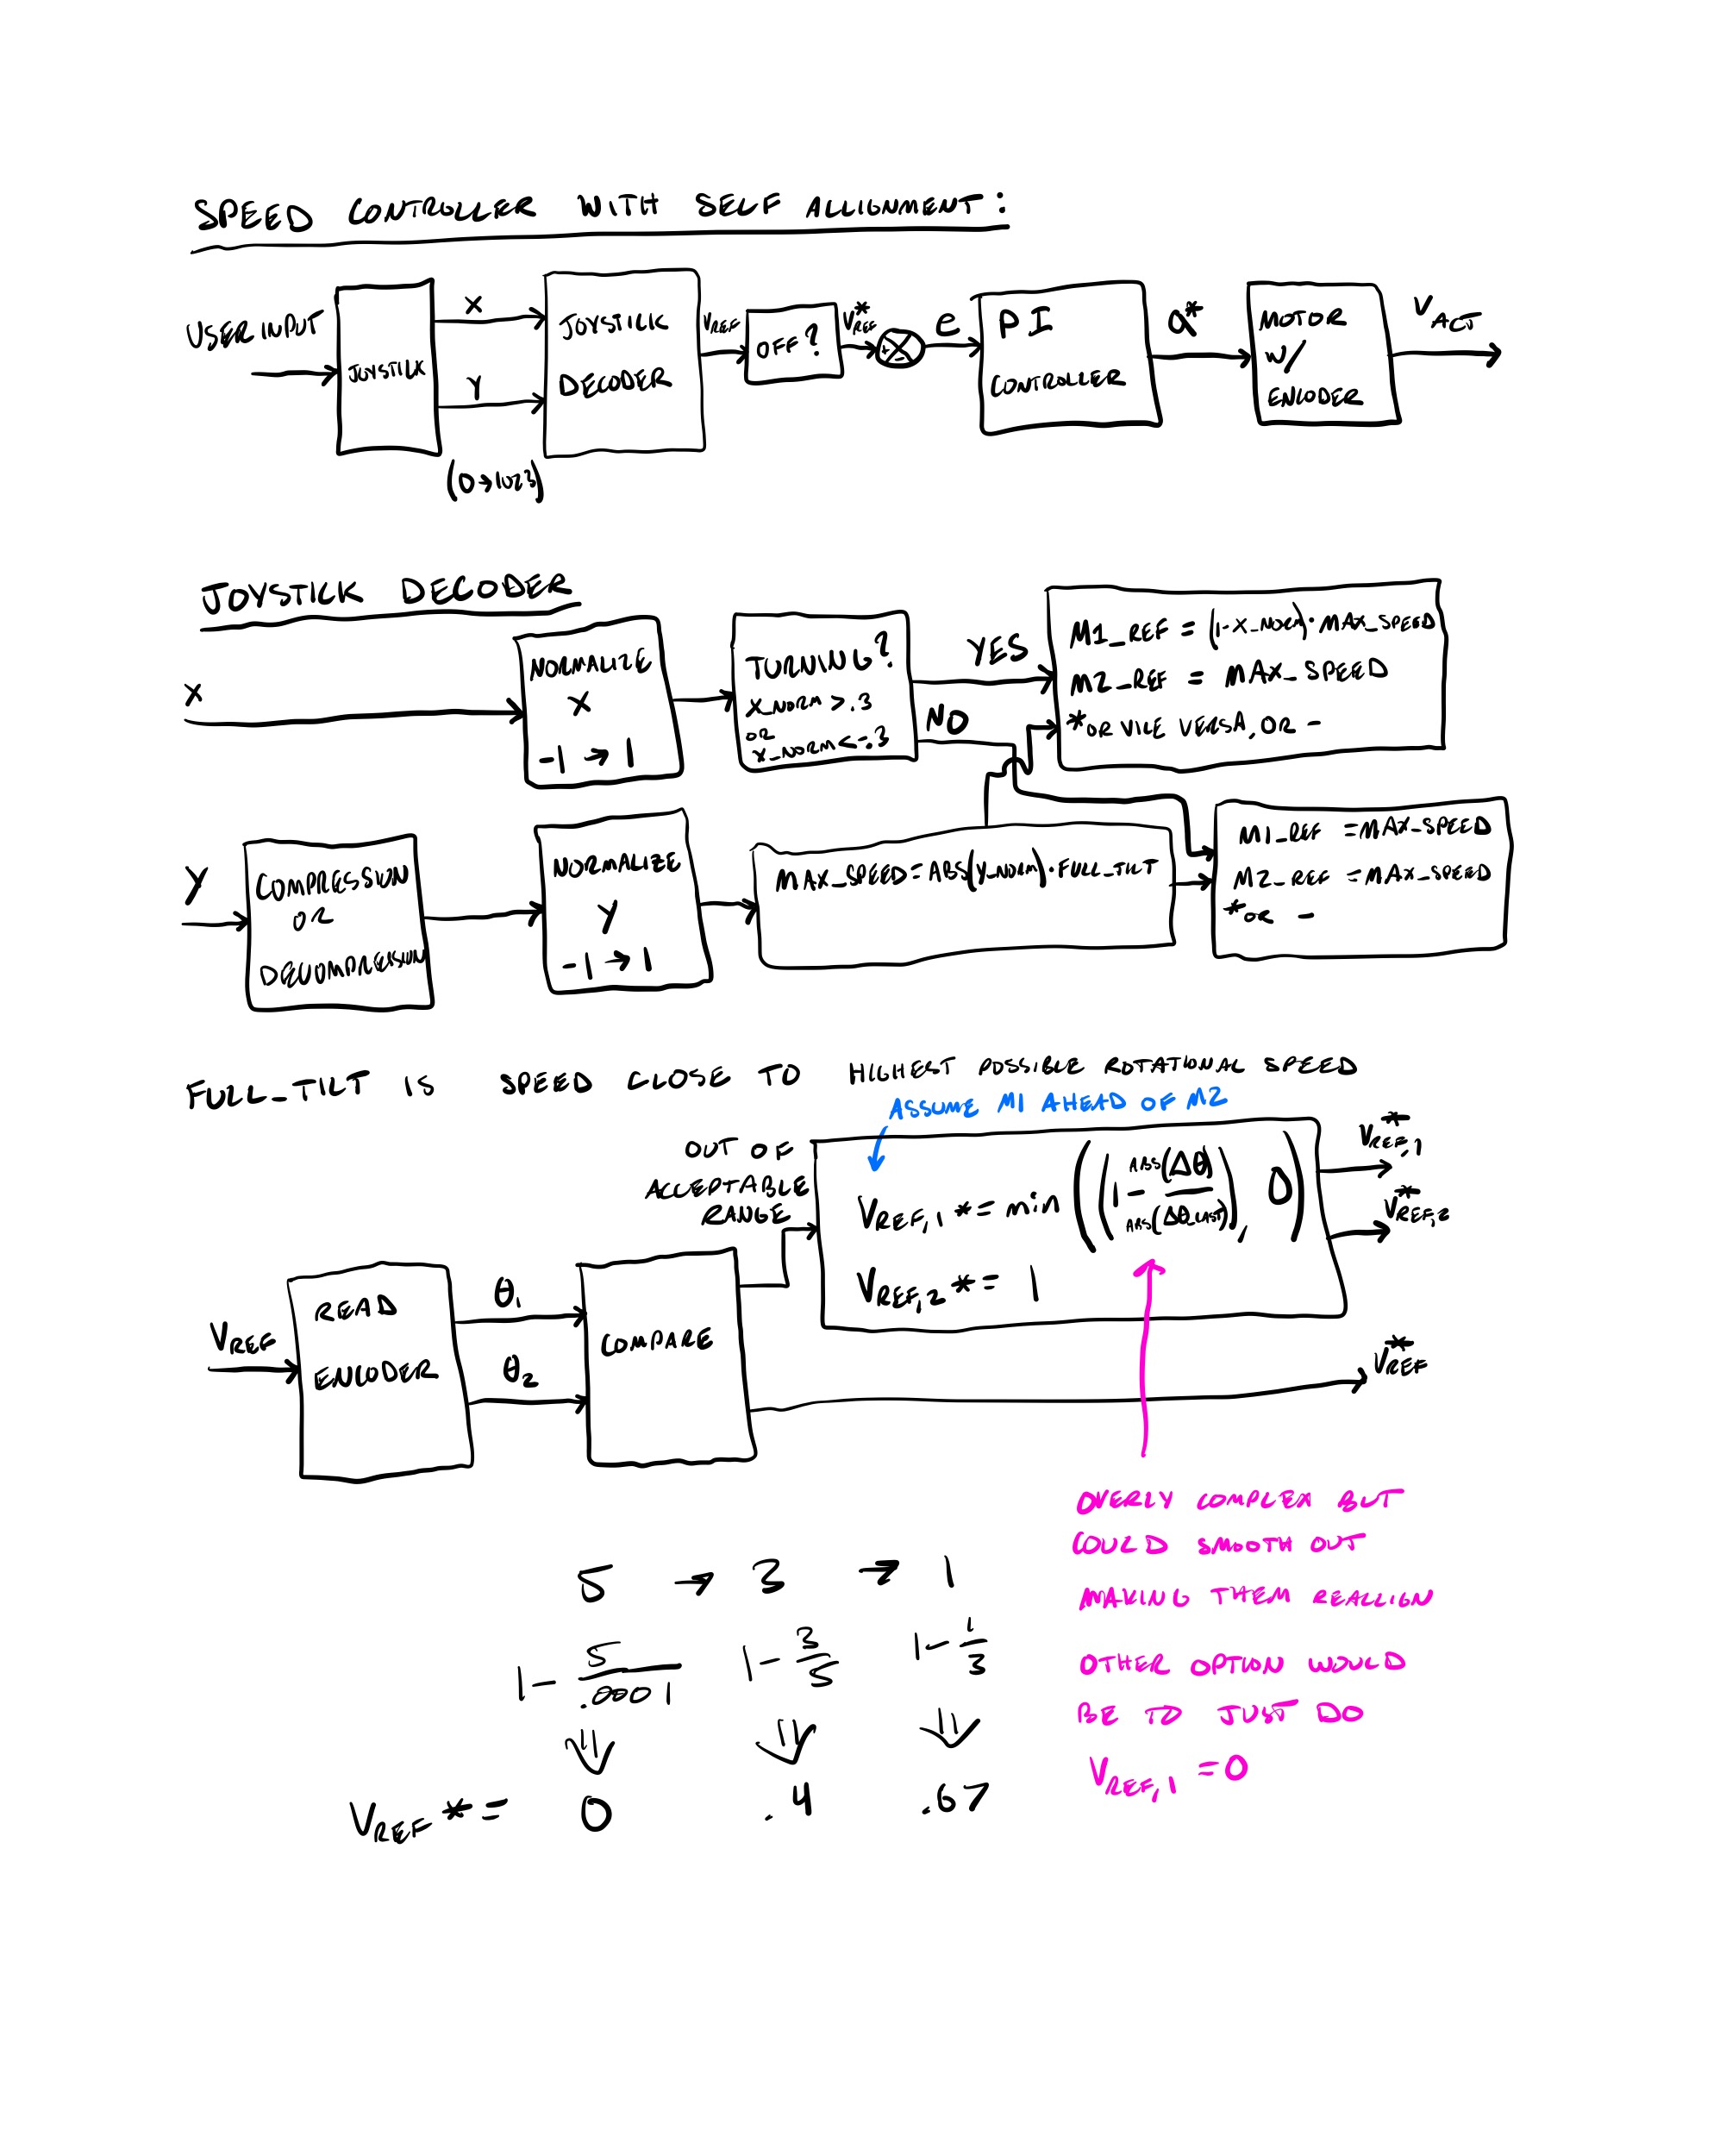 SPEED CONTROLLER WITH SELF ALLIGNMENT:
USER INPUT
JOYSTICK
X
Y
(0→1023)
JOYSTICK
DECODER
VREF
OFF?
V*REF
+ -
e
PI
CONTROLLER
a*
MOTOR
W/
ENCODER
VACT
JOYSTICK DECODER
X
NORMALIZE
X
-1 → 1
TURNING?
X_NORM > .3
OR
X_NORM <-.3
YES
NO
M1_REF = (1-X_NORM)·MAX_SPEED
M2_REF = MAX_SPEED
*OR VICE VERSA, OR -
Y
COMPRESSION
OR
DECOMPRESSION
NORMALIZE
Y
-1 → 1
MAX_SPEED = ABS(Y_NORM)·FULL_TILT
M1_REF = MAX_SPEED
M2_REF = MAX_SPEED
*OR -
FULL_TILT IS SPEED CLOSE TO HIGHEST POSSIBLE ROTATIONAL SPEED
ASSUME M1 AHEAD OF M2
VREF
READ
ENCODER
θ1
θ2
COMPARE
OUT OF
ACCEPTABLE
RANGE
VREF,1 *= min((1 - ABS(Δθ)/ABS(Δθ_LAST)), 0)
VREF,2 *= 1
V*REF,1
V*REF,2
V*REF
OVERLY COMPLEX BUT
COULD SMOOTH OUT
MAKING THEM REALLIGN
OTHER OPTION WOULD
BE TO JUST DO
VREF,1 = 0
5 → 3 → 1
1 - 5/.0001 1 - 3/5 1 - 1/3
VREF *= 0 .4 .67